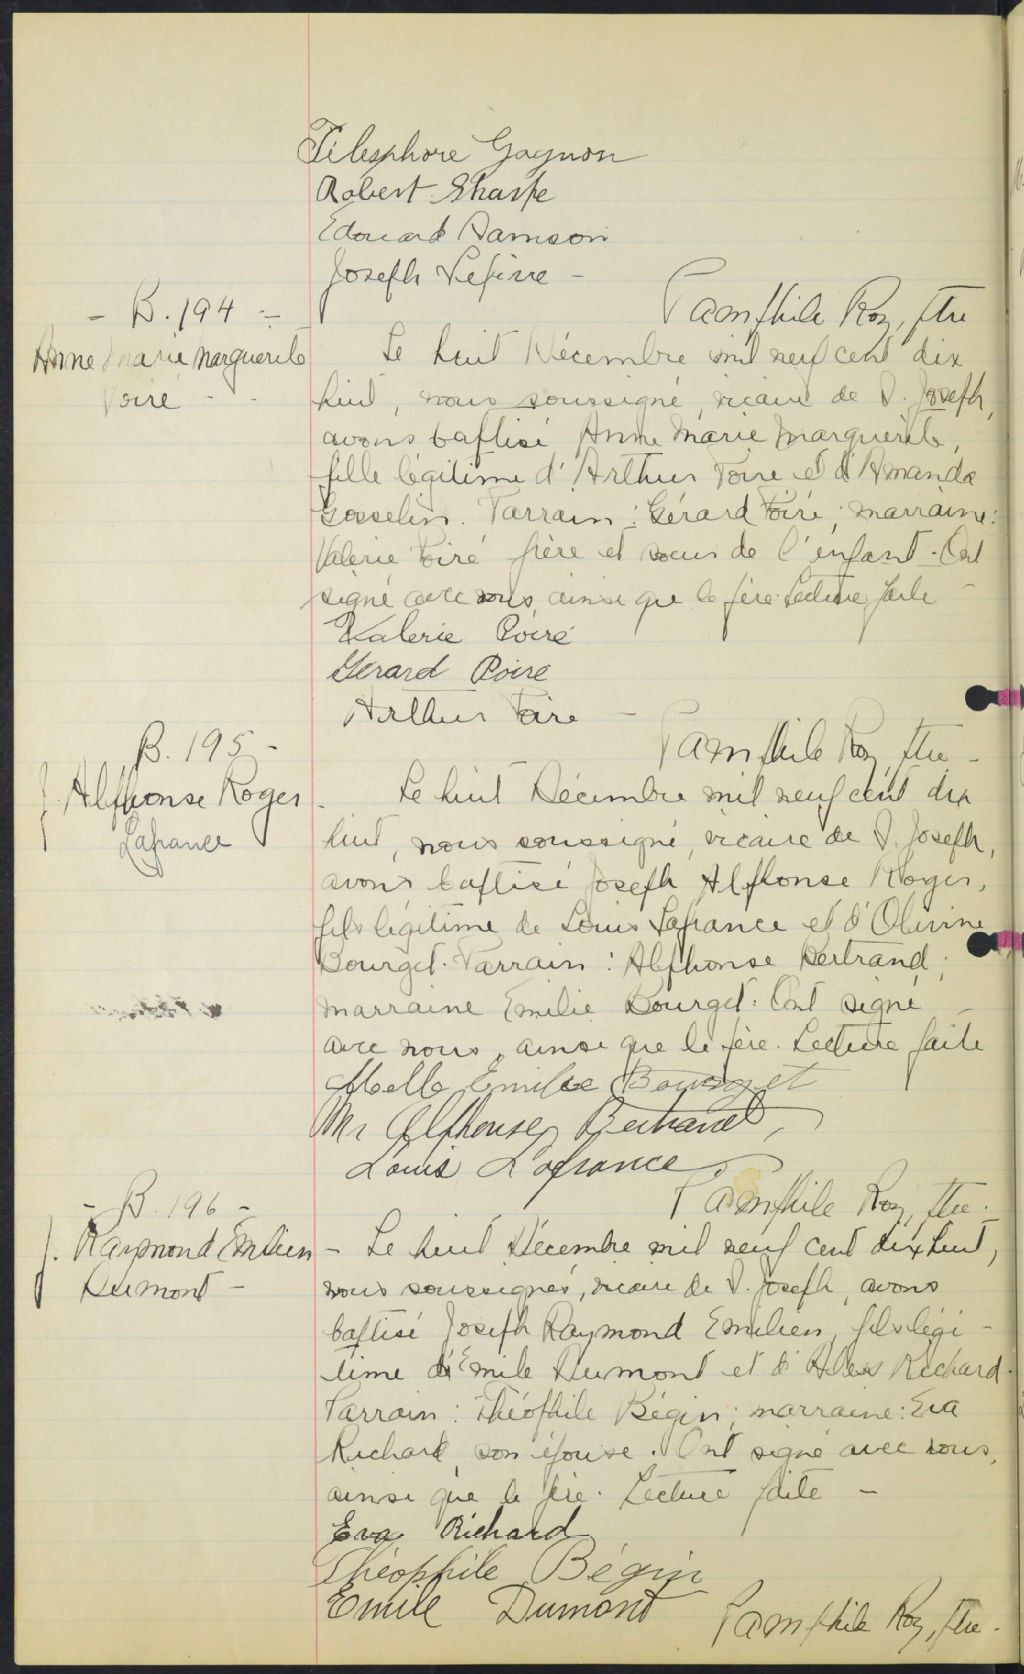 Télesphore Gagnon
Robert Sharpe
Edouard Samson
Joseph Lefivre -
Pamphile Roy, ptre
- B. 194 -
Anne Marie Marguerite
Poiré
Le huit Décembre mil neuf cent dix
huit, nous soussigné, vicaire de S. Joseph,
avons baptisé Anne Marie Marguerite,
fille légitime d'Arthur Poire et d'Amanda
Gosselin. Parrain: Gérard Poiré; marraine:
Valerie Poiré frère et soeur de l'enfant. Ont
signé avec nous, ainsi que le père. Lecture faite -
Valerie Poiré
Gerard Poire
Arthur Poire -
Pamphile Roy, ptre -
B. 195 -
J. Alphonse Roger
Lafrance
Le huit Décembre mil neuf cent dix
huit, nous soussigné, vicaire de S. Joseph,
avons baptisé Joseph Alphonse Roger,
fils légitime de Louis Lafrance et d'Olivine
Bourget. Parrain: Alphonse Bertrand;
marraine Emilie Bourget. Ont signé
avec nous, ainsi que le père. Lecture faite
Melle Emilie Bourget
Mr Alphonse Bertrand,
Louis Lafrance
Pamphile Roy, ptre.
- B. 196 -
J. Raymond Emilien
Dumont -
- Le huit Décembre mil neuf cent dix huit,
nous soussignés, vicaire de S. Joseph, avons
baptisé Joseph Raymond Emilien, fils légi-
time d'Emile Dumont et d' Richard.
Parrain: Théophile Bégin; marraine: Eva
Richard, son épouse. Ont signé avec nous,
ainsi que le père. Lecture faite -
Eva Richard
Théophile Bégin
Emile Dumont
Pamphile Roy, ptre.